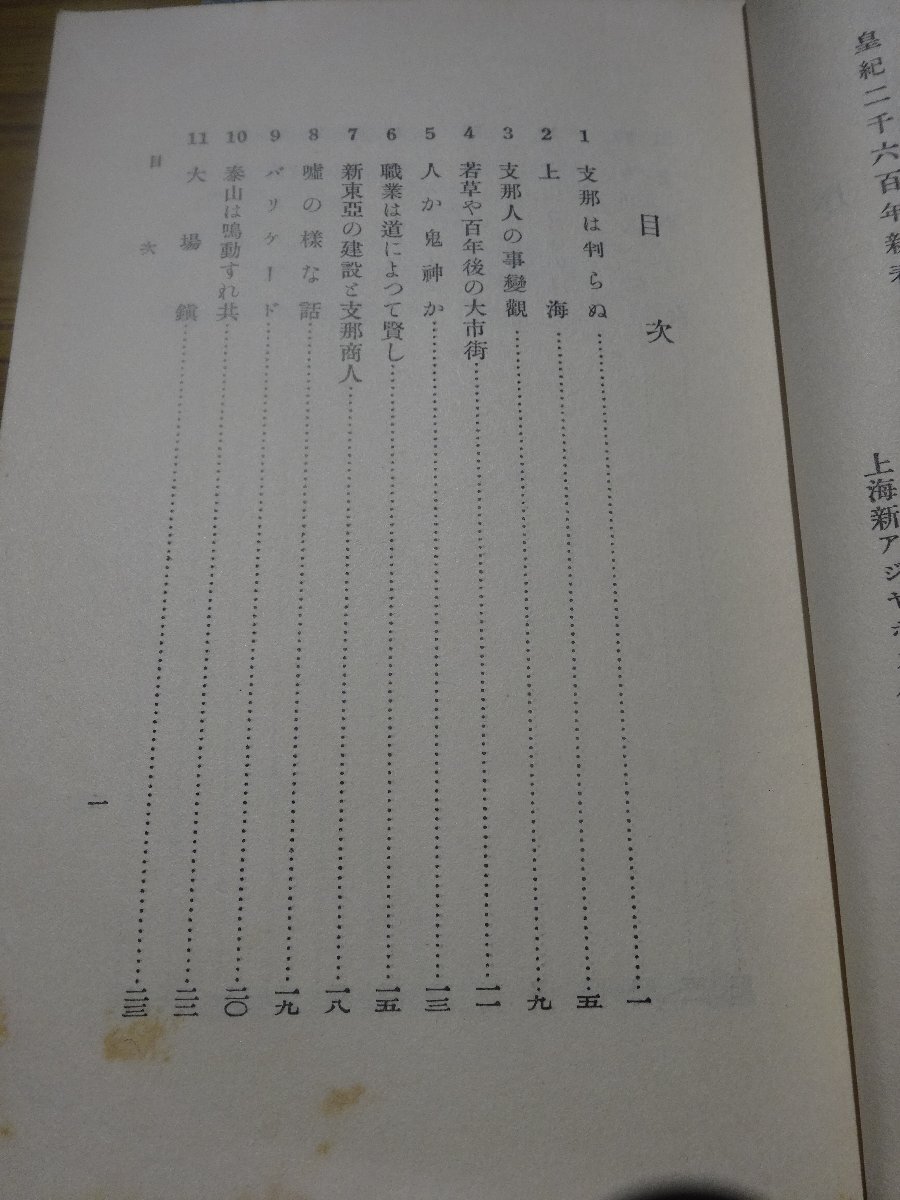 皇紀二千六百年新春
上海新アジヤホテル
目次
1 支那は判らぬ……一
2 上海……五
3 支那人の事變觀……九
4 若草や百年後の大市街……一一
5 人か鬼神か……一三
6 職業は道によつて賢し……一五
7 新東亞の建設と支那商人……一八
8 噓の樣な話……一九
9 バリケード……二〇
10 泰山は鳴動すれ共……二二
11 大場鎭……二三
目次
一